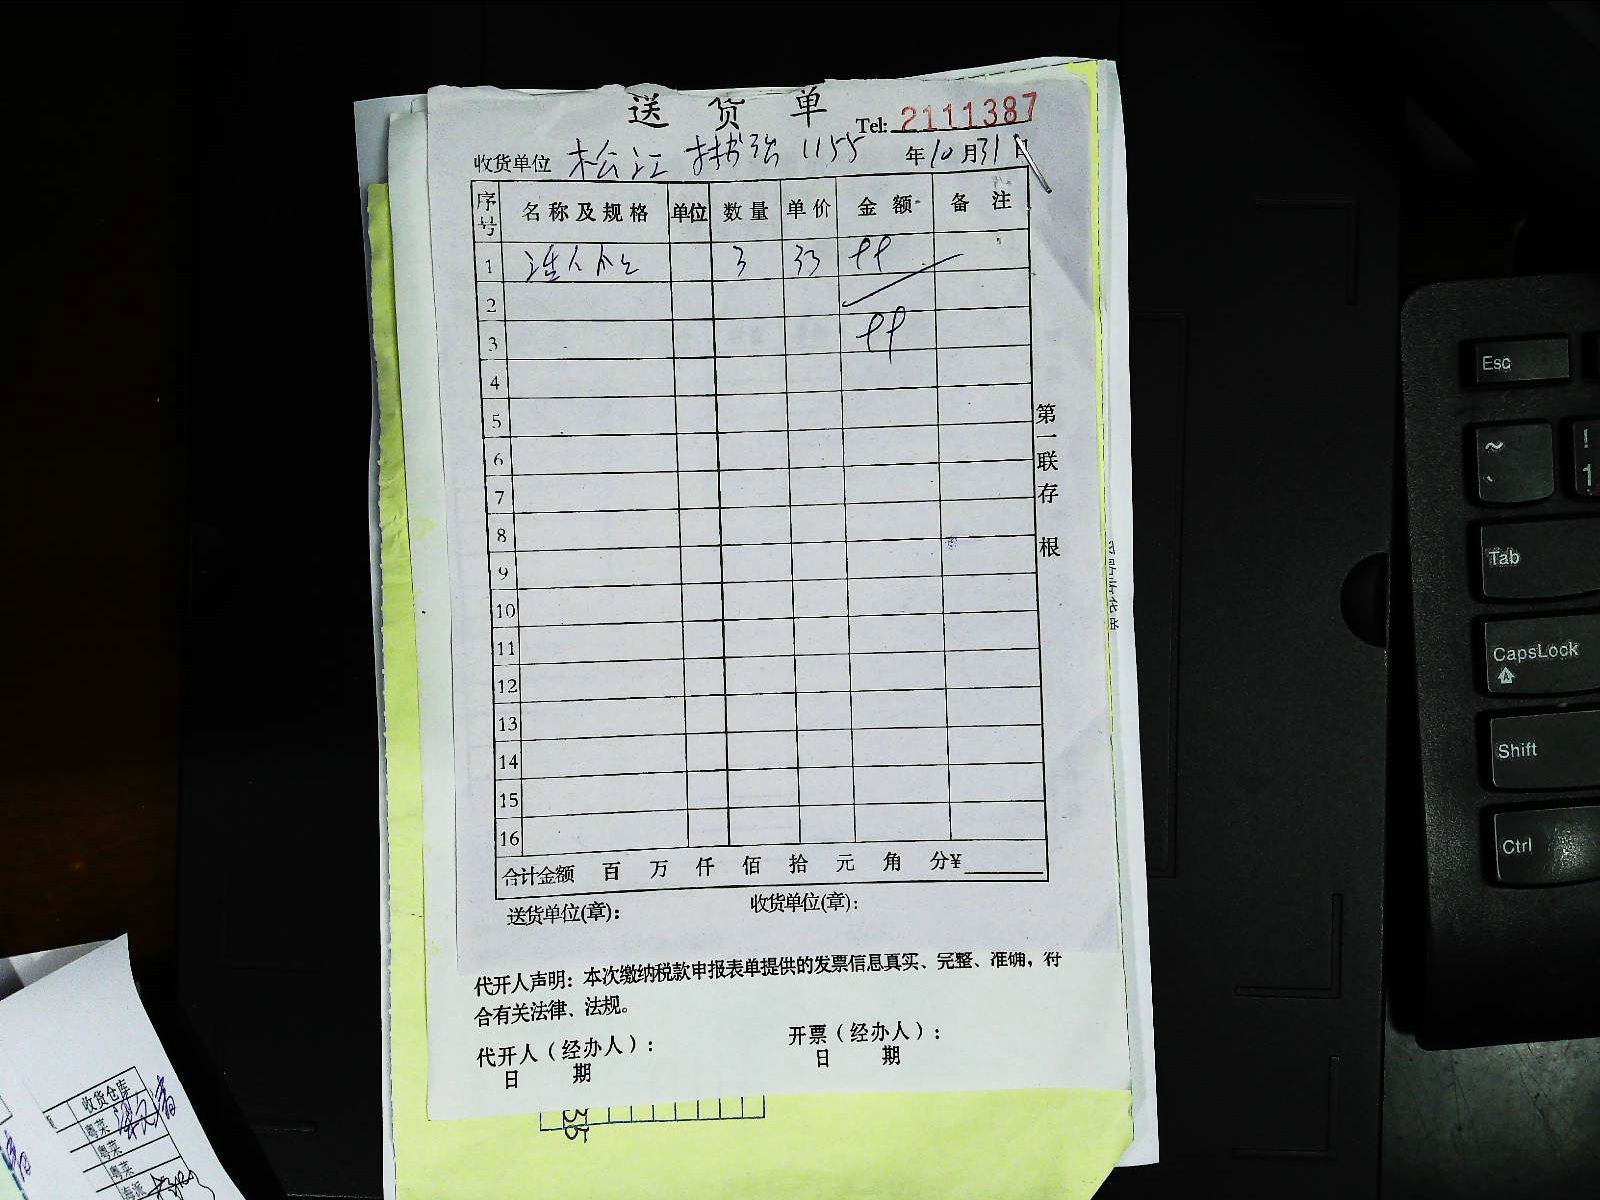 送 货 单
Tel: 2111387
收货单位 松江 1155 年10月31日
序号 名称及规格 单位 数量 单价 金额 备注
1 3 33 99
2
3 99
4
5
6
7
8
9
10
11
12
13
14
15
16
第一联存根
合计金额 百 万 仟 佰 拾 元 角 分¥
送货单位(章): 收货单位(章):
代开人声明：本次缴纳税款申报表单提供的发票信息真实、完整、准确，符
合有关法律、法规。
代开人（经办人）： 开票（经办人）：
日 期 日 期
收货仓库
粤菜
粤菜
粤菜
Esc
~
`
!
1
Tab
CapsLock
Shift
Ctrl